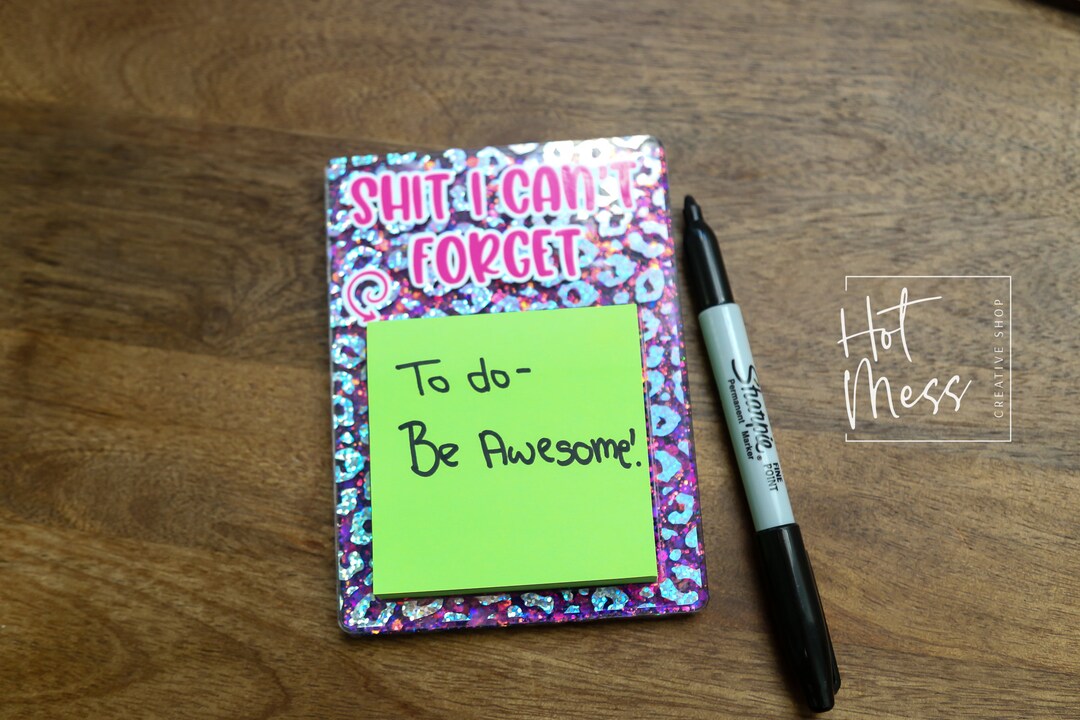 SHIT I CAN'T
FORGET
To do-
Be Awesome!
Sharpie®
Permanent Marker
FINE
POINT
Hot
Mess
CREATIVE SHOP